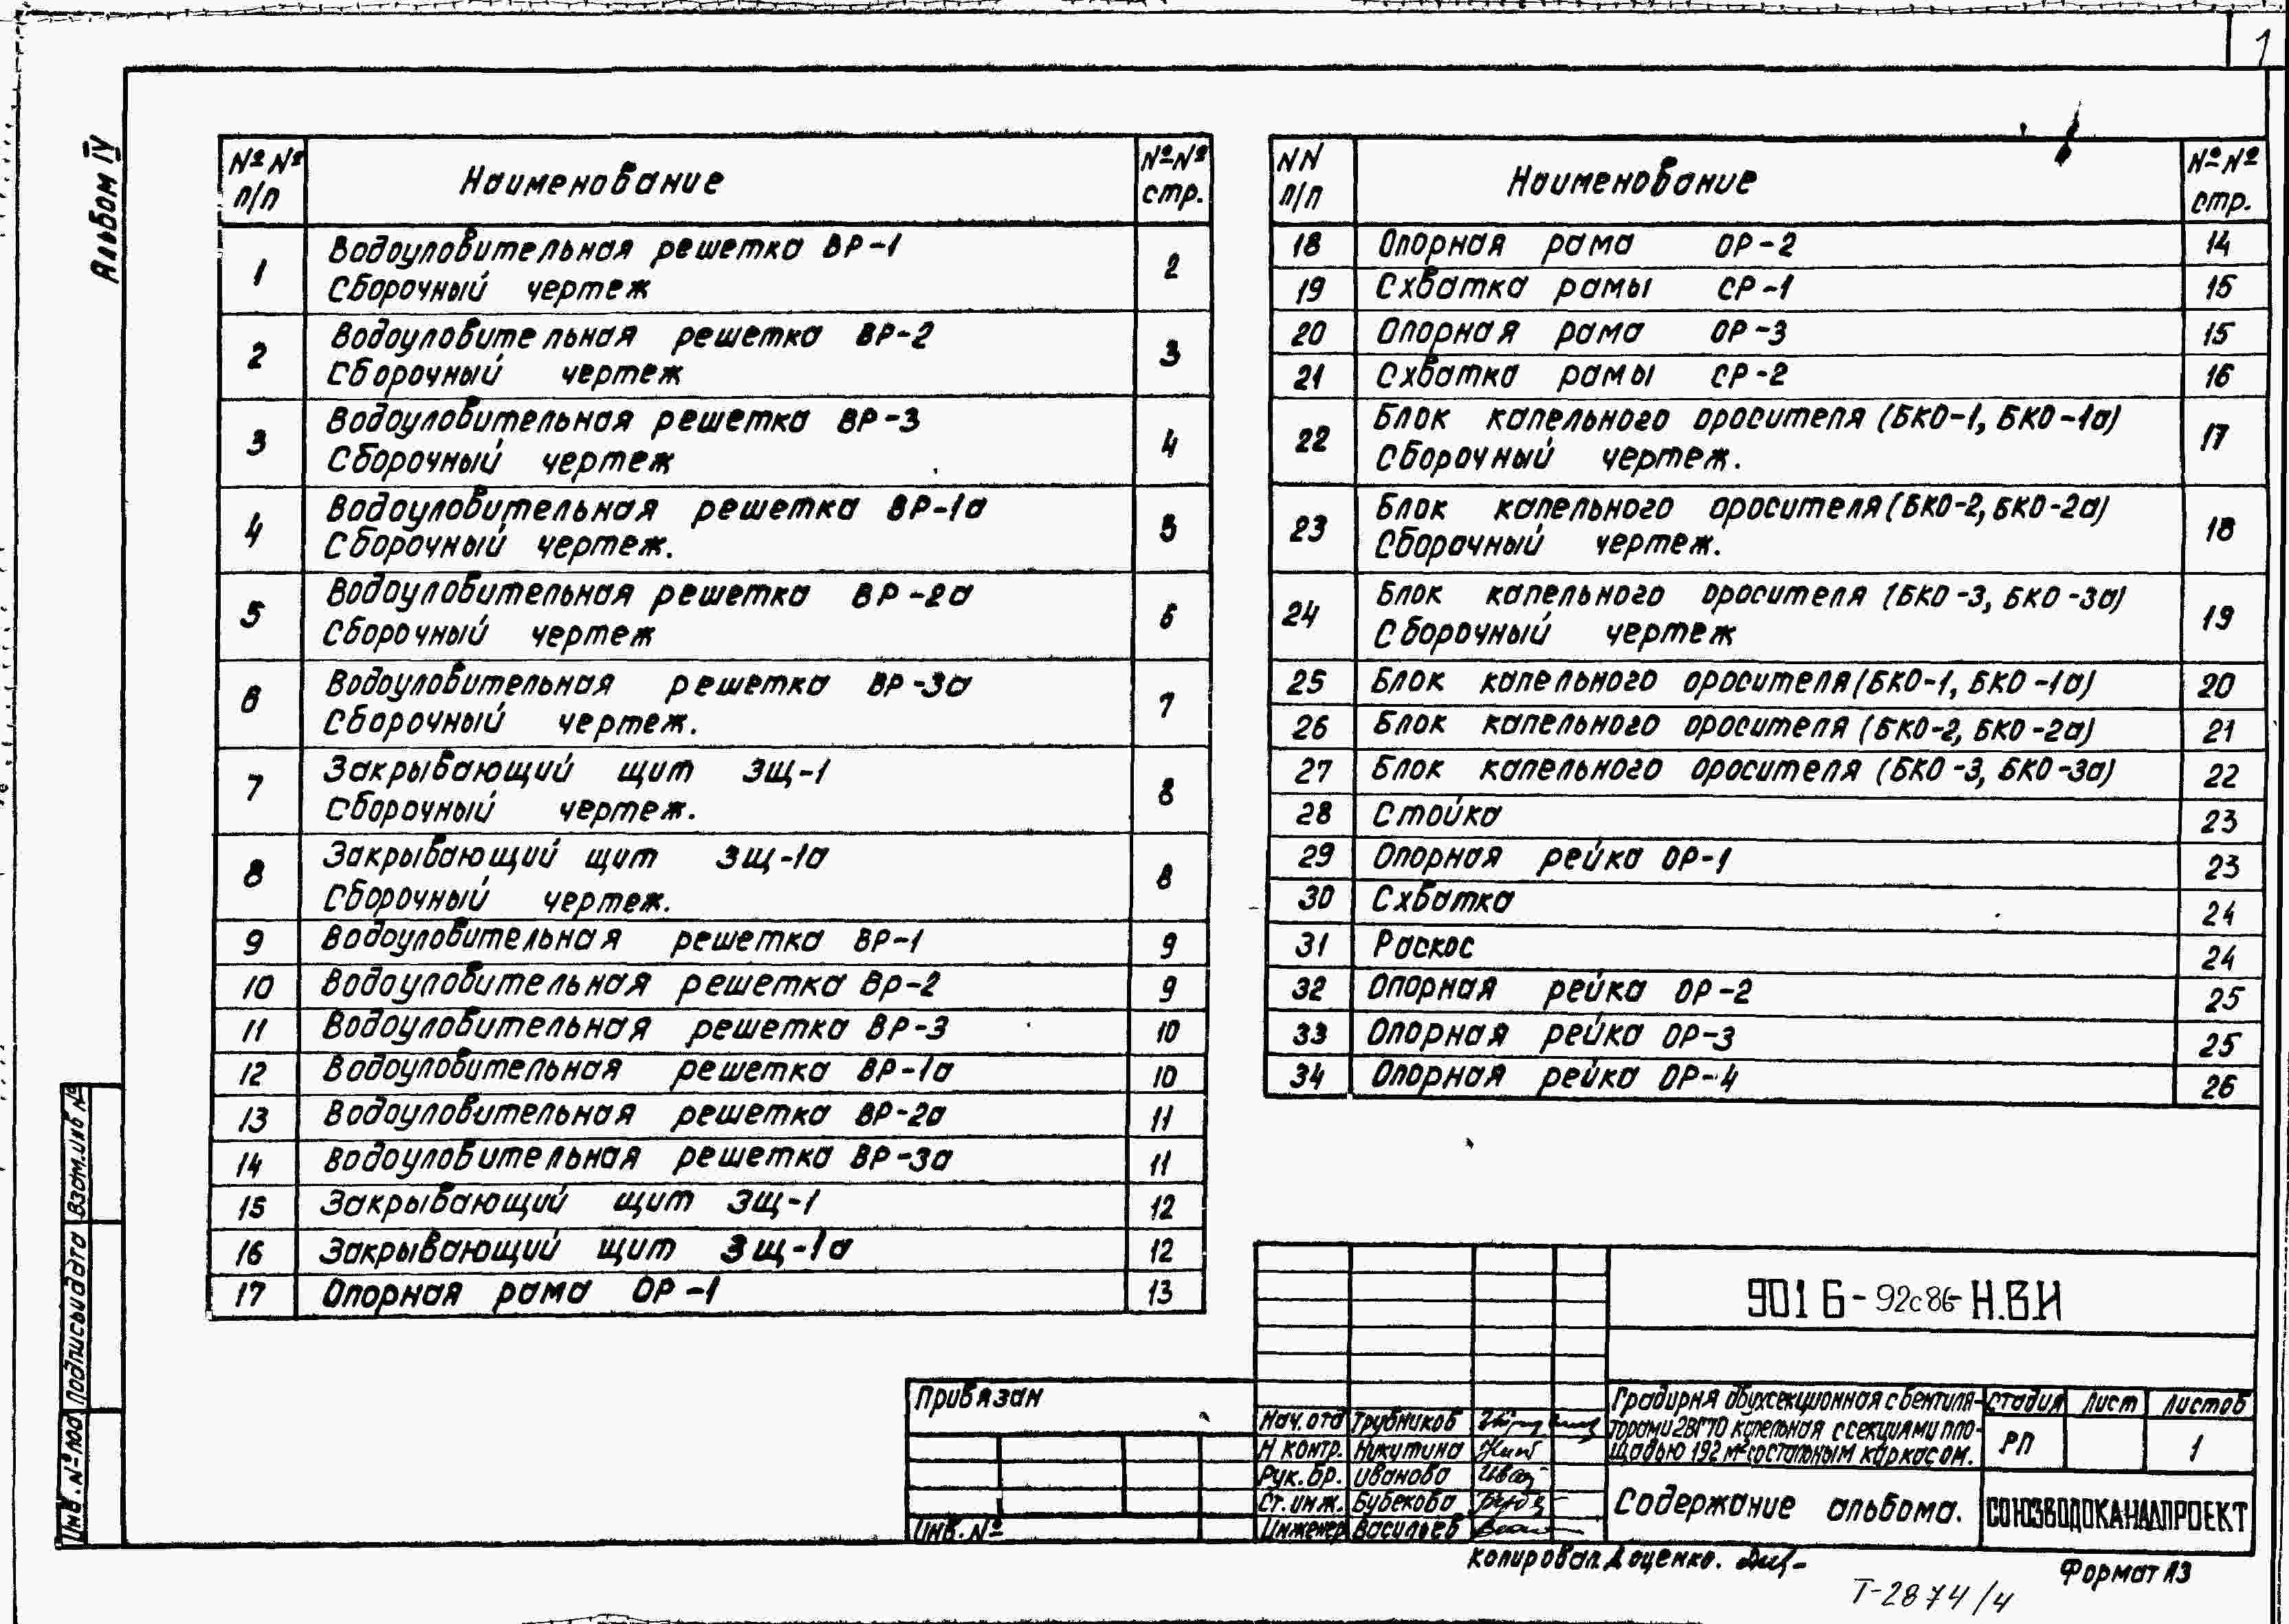 1
Альбом IV
№ № п/п
Наименование
№ № стр.
1 Водоуловительная решетка ВР-1 2
Сборочный чертеж
2 Водоуловительная решетка ВР-2 3
Сборочный чертеж
3 Водоуловительная решетка ВР-3 4
Сборочный чертеж
4 Водоуловительная решетка ВР-1а 5
Сборочный чертеж.
5 Водоуловительная решетка ВР-2а 6
Сборочный чертеж
6 Водоуловительная решетка ВР-3а 7
Сборочный чертеж.
7 Закрывающий щит ЗЩ-1 8
Сборочный чертеж.
8 Закрывающий щит ЗЩ-1а 8
Сборочный чертеж.
9 Водоуловительная решетка ВР-1 9
10 Водоуловительная решетка Вр-2 9
11 Водоуловительная решетка ВР-3 10
12 Водоуловительная решетка ВР-1а 10
13 Водоуловительная решетка ВР-2а 11
14 Водоуловительная решетка ВР-3а 11
15 Закрывающий щит ЗЩ-1 12
16 Закрывающий щит ЗЩ-1а 12
17 Опорная рама ОР-1 13
NN п/п
Наименование
№ № стр.
18 Опорная рама ОР-2 14
19 Схватка рамы СР-1 15
20 Опорная рама ОР-3 15
21 Схватка рамы СР-2 16
22 Блок капельного оросителя (БКО-1, БКО-1а) 17
Сборочный чертеж.
23 Блок капельного оросителя (БКО-2, БКО-2а) 18
Сборочный чертеж.
24 Блок капельного оросителя (БКО-3, БКО-3а) 19
Сборочный чертеж
25 Блок капельного оросителя (БКО-1, БКО-1а) 20
26 Блок капельного оросителя (БКО-2, БКО-2а) 21
27 Блок капельного оросителя (БКО-3, БКО-3а) 22
28 Стойка 23
29 Опорная рейка ОР-1 23
30 Схватка 24
31 Раскос 24
32 Опорная рейка ОР-2 25
33 Опорная рейка ОР-3 25
34 Опорная рейка ОР-4 26
Взам.инв №
Подпись и дата
Инв.№ под
Привязан
Инв.№
Нач.отд Трубников
Н контр. Никитина
Рук.бр. Иванова
Ст.инж. Бубекова
Инженер Васильев
901 6-92с86-Н.ВИ
Градирня двухсекционная с вентиля-
торами 2ВГ70 капельная с секциями пло-
щадью 192 м² со стальным каркасом.
Стадия Лист Листов
РП 1
Содержание альбома.
СОЮЗВОДОКАНАЛПРОЕКТ
Копировал Доценко.
Формат А3
Т-2874/4